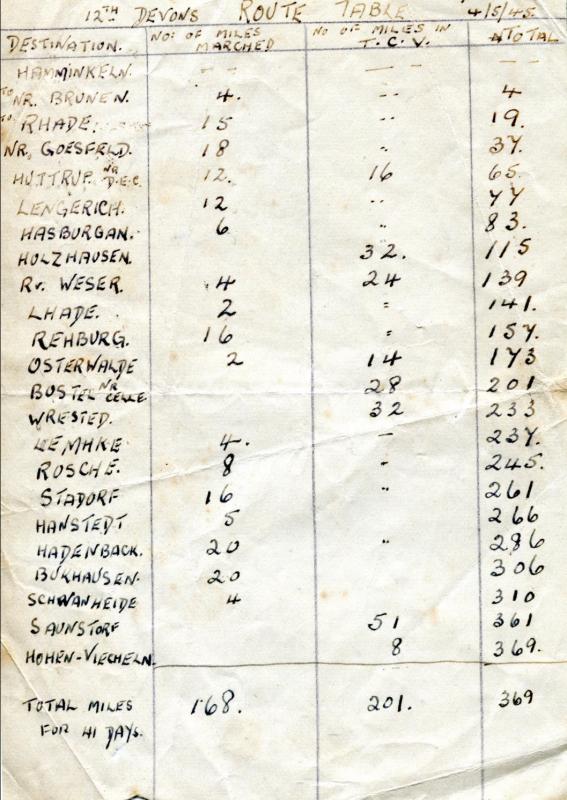 12TH DEVONS ROUTE TABLE 4/5/45.
DESTINATION. NO: OF MILES MARCHED NO OF MILES IN T.C.V. TOTAL
HAMMINKELN. -- -- --
TO NR. BRUNEN. 4. -- 4
TO RHADE. 15 " 19.
NR. GOESFELD. 18 " 37.
HUTTRUP NR D.E.C. 12. 16 65.
LENGERICH. 12 " 77
HASBURGAN. 6 " 83.
HOLZHAUSEN. 32. 115
RV. WESER. 4 24 139
LHADE. 2 = 141.
REHBURG. 16 = 157.
OSTERWALDE 2 14 173
BOSTEL NR CELLE 28 201
WRESTED. 32 233
LEMHKE 4. - 237.
ROSCHE. 8 " 245.
STADORF 16 " 261
HANSTEDT 5 266
HADENBACK. 20 " 286
BUKHAUSEN. 20 306
SCHWANHEIDE 4 310
SAUNSTORF 51 361
HOHEN-VIECHELN. 8 369.
TOTAL MILES 168. 201. 369
FOR 41 DAYS.